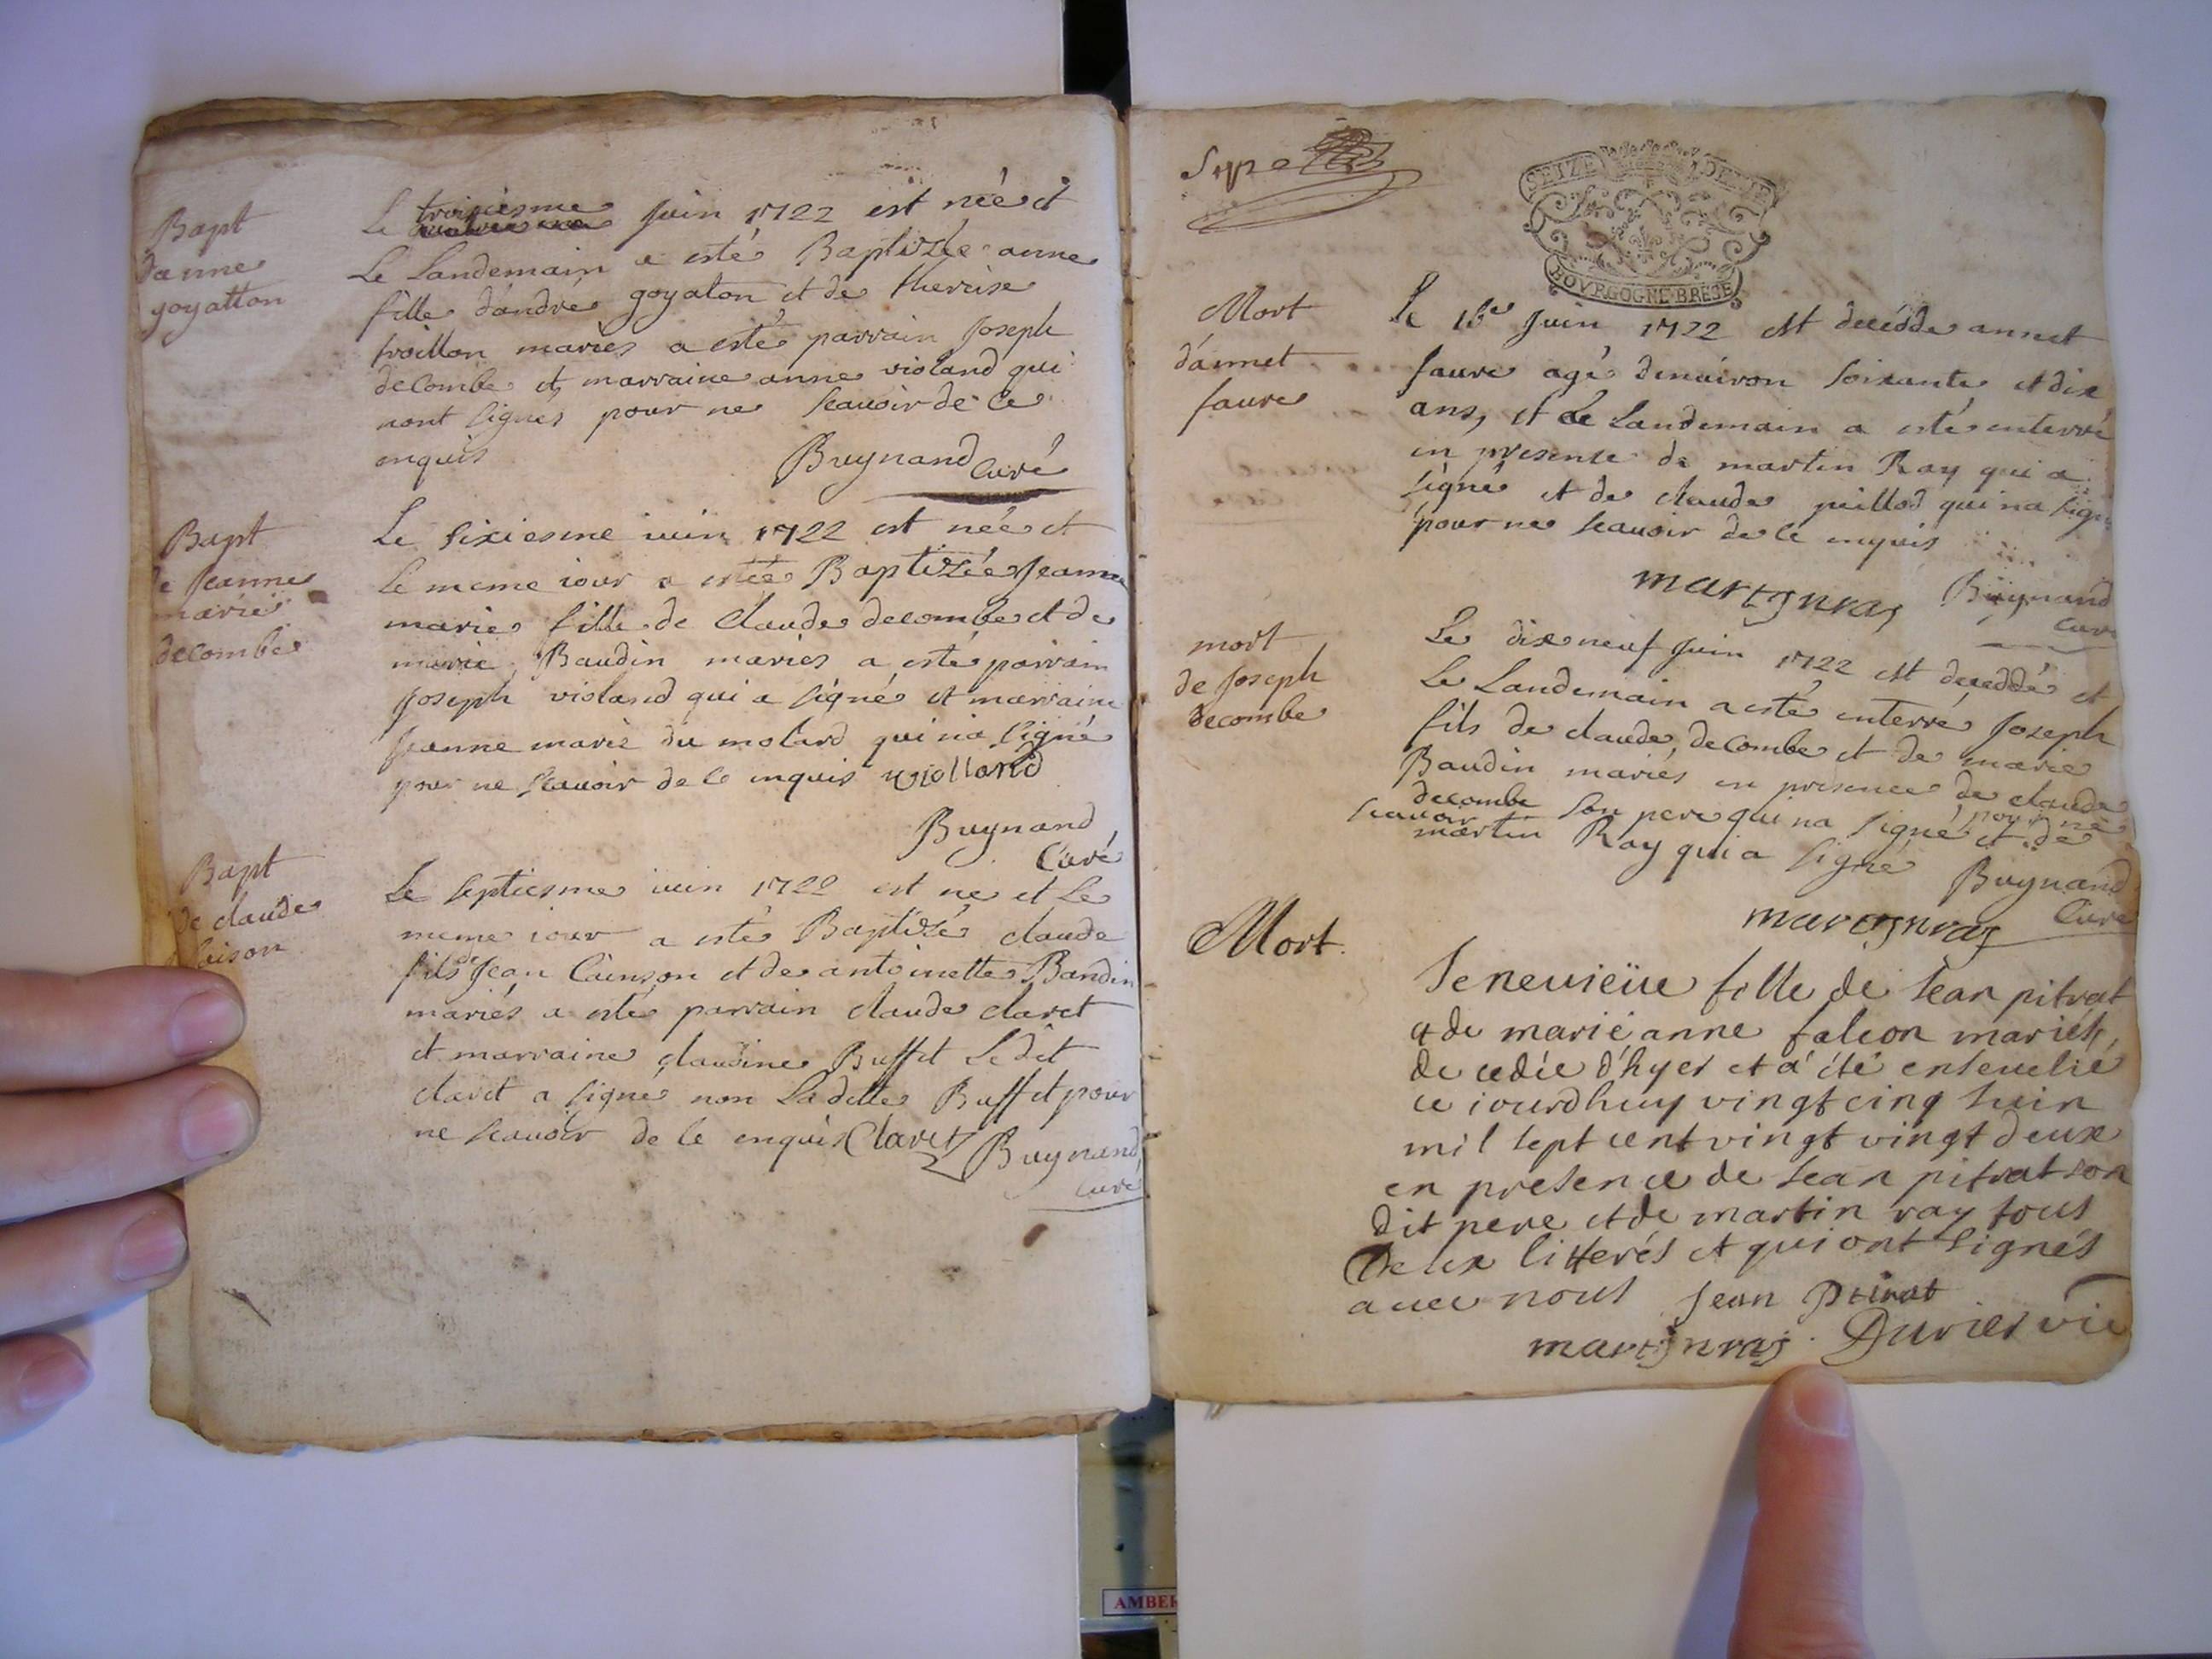 Bapt
danne
goyatton
Le troisiesme Juin 1722 est née et
Le Landemain a esté Baptizée anne
fille dandré goyaton et de therese
troillon mariés a esté parrain Joseph
decombe et marraine anne violand qui
nont signés pour ne scauoir de ce
enquis
Buynand Curé
Bapt
de Jeanne
marie
decombe
Le sixiesme iuin 1722 est née et
le meme iour a estée Baptizée Jeanne
marie fille de Claude decombe et de
marie Baudin mariés a esté parrain
Joseph violand qui a signé et marraine
Jeanne marie du molard qui na signé
pour ne scauoir de ce enquis violland
Buynand
Curé
Bapt
de claude
Le septiesme iuin 1722 est ne et Le
meme iour a esté Baptizé claude
fils de Jean Cainson et de antoinette Baudin
mariés a esté parrain claude claret
et marraine claudine Buffet Le dit
claret a signé non Ladette Buffet pour
ne scauoir de ce enquis Claret Buynand
Curé
SEIZE DENIE
BOVRGOGNE BRESE
Mort
d'annet
faure
Le 18e Juin 1722 est decedde annet
faure agé denuiron soixante et dix
ans, et Le Landemain a esté enterré
en presence de martin Ray qui a
signé et de claude puillod qui na signé
pour ne scauoir de ce enquis
martin ray Buynand
Curé
mort
de Joseph
decombe
Le dix neuf Juin 1722 est deceddé et
Le Landemain a esté enterré Joseph
fils de claude decombe et de marie
Baudin mariés en presence de claude
decombe son pere qui na signé pour ne
scauoir et de
martin Ray qui a signé
Buynand
Curé
martin ray
Mort.
Jeneuieüe fille de Jean pitrat
et de marie anne falcon mariés,
decedée d'hyer et a été enseuelie
ce iourdhuy vingt cinq Juin
mil sept cent vingt vingt deux
en presence de Jean pitrat son
dit pere et de martin ray tous
Deux litterés et qui ont signés
auec nous Jean Pitrat
martin ray. Durier vic
AMBER